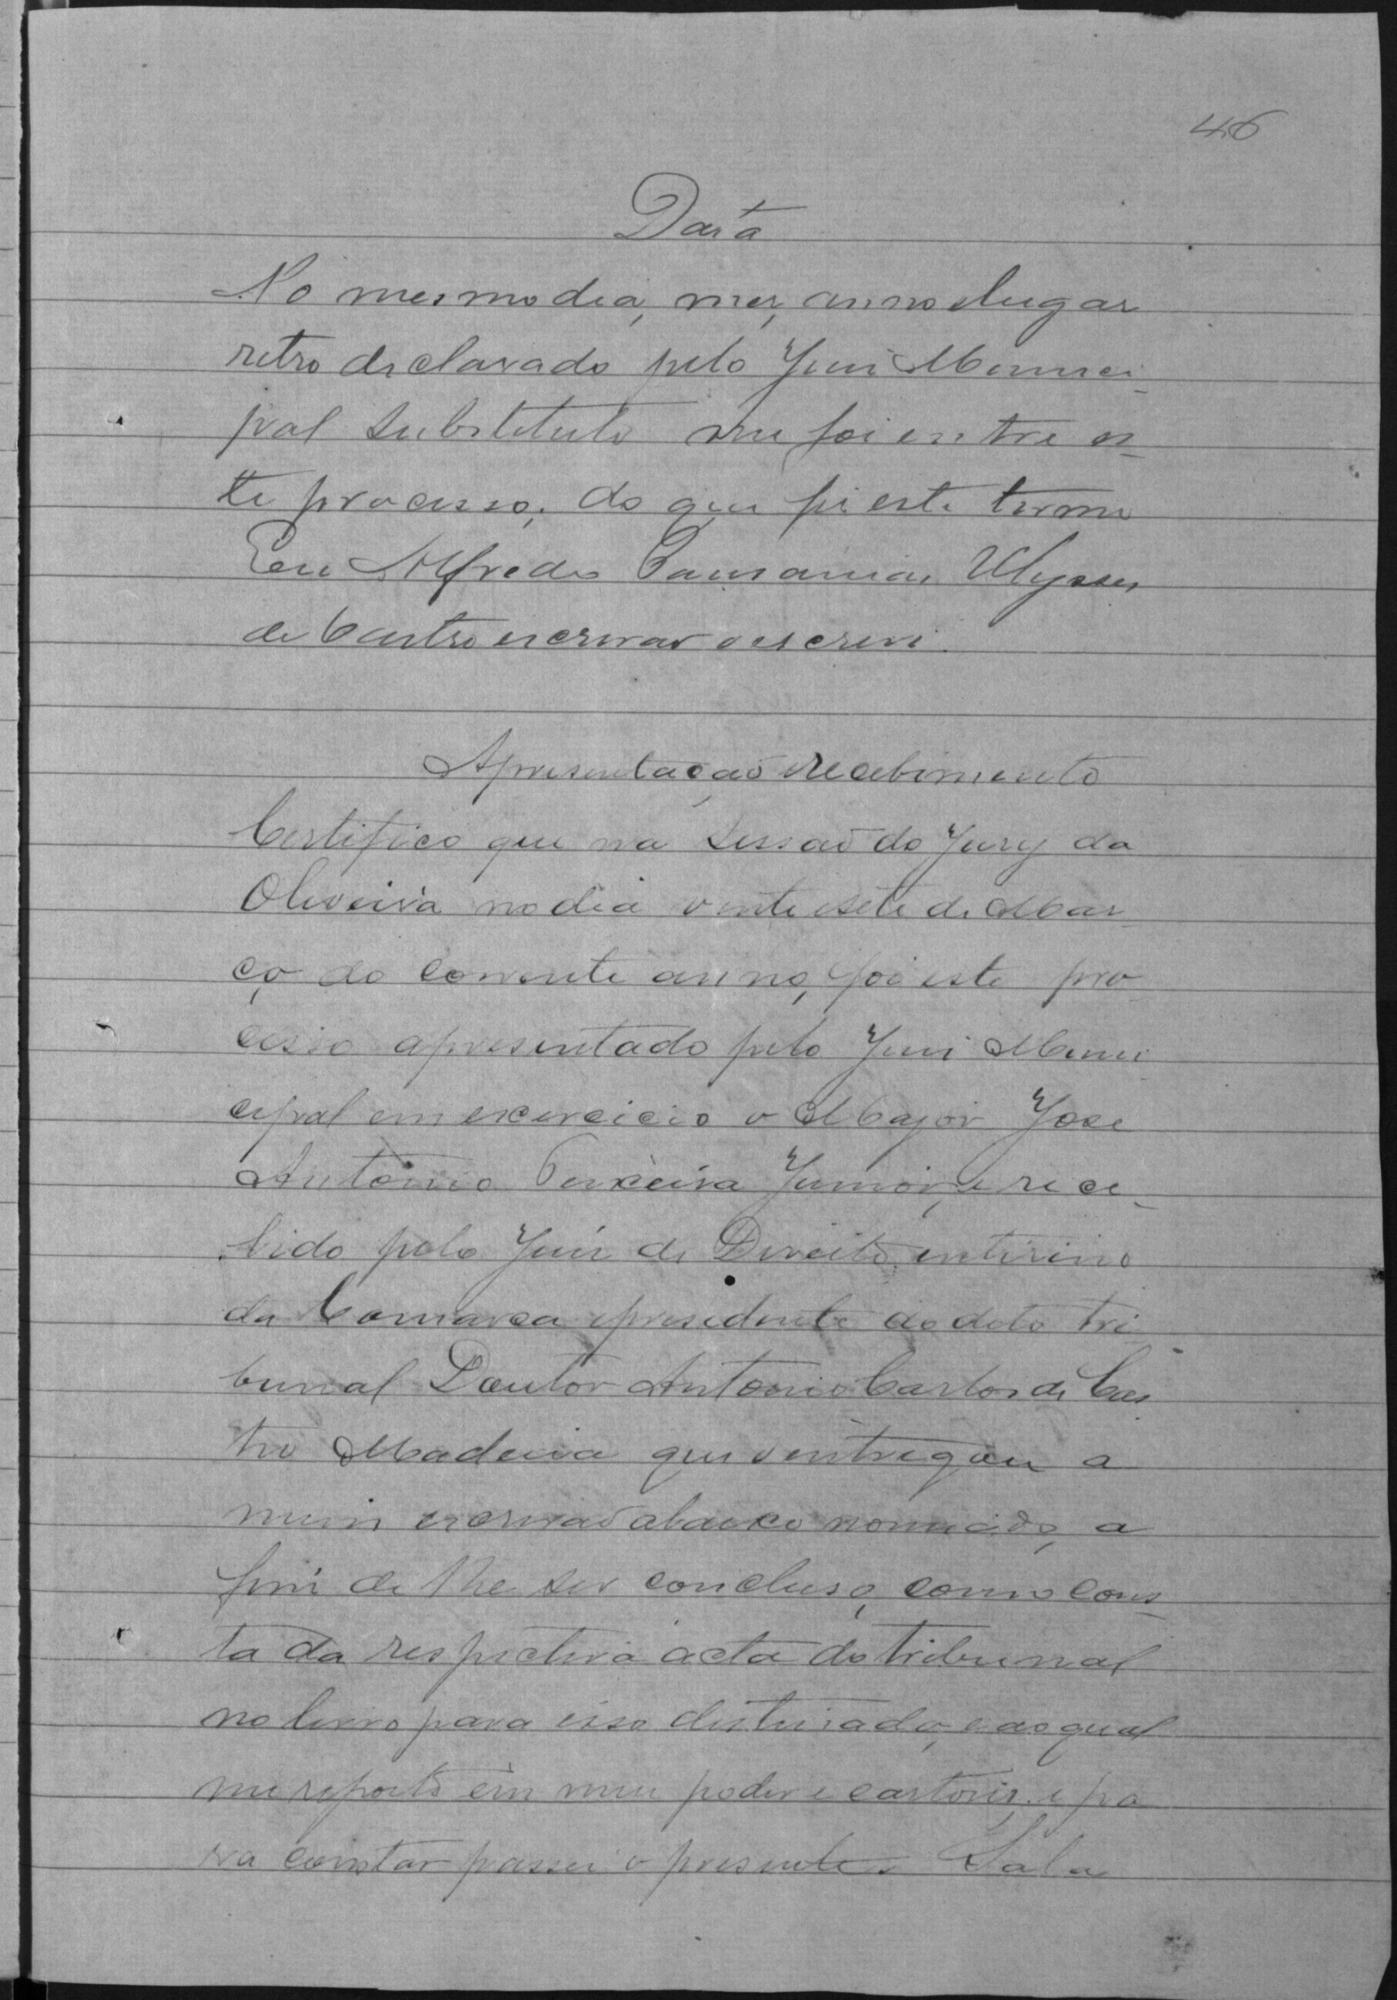 46
Data
No mesmo dia, mez, anno e lugar
retro declarado pelo Juiz Munici-
pal substituto me foi entre es-
te processo, do que fiz este termo
Eu Alfredo Pausanias Ulysses
de Castro escrivão o escrevi.
Apresentação e recebimento
Certifico que na sessão do Jury da
Oliveira no dia vinte e sete de Mar-
ço do corrente anno, foi este pro-
cesso apresentado pelo Juiz Muni
cipal em exercicio o Major José
Antonio Teixeira Junior, e rece-
bido pelo Juiz de Direito interino
da Comarca e presidente do dito tri
bunal Doutor Antonio Carlos de Cas
tro Madeira que o entregou a
mim escrivão abaixo nomeado, a
fim de lhe ser concluso, como cons-
ta da respectiva acta do tribunal
no livro para isso destinado, e ao qual
me reporto em meu poder e cartorio, e pa
ra constar passei o presente. Sala